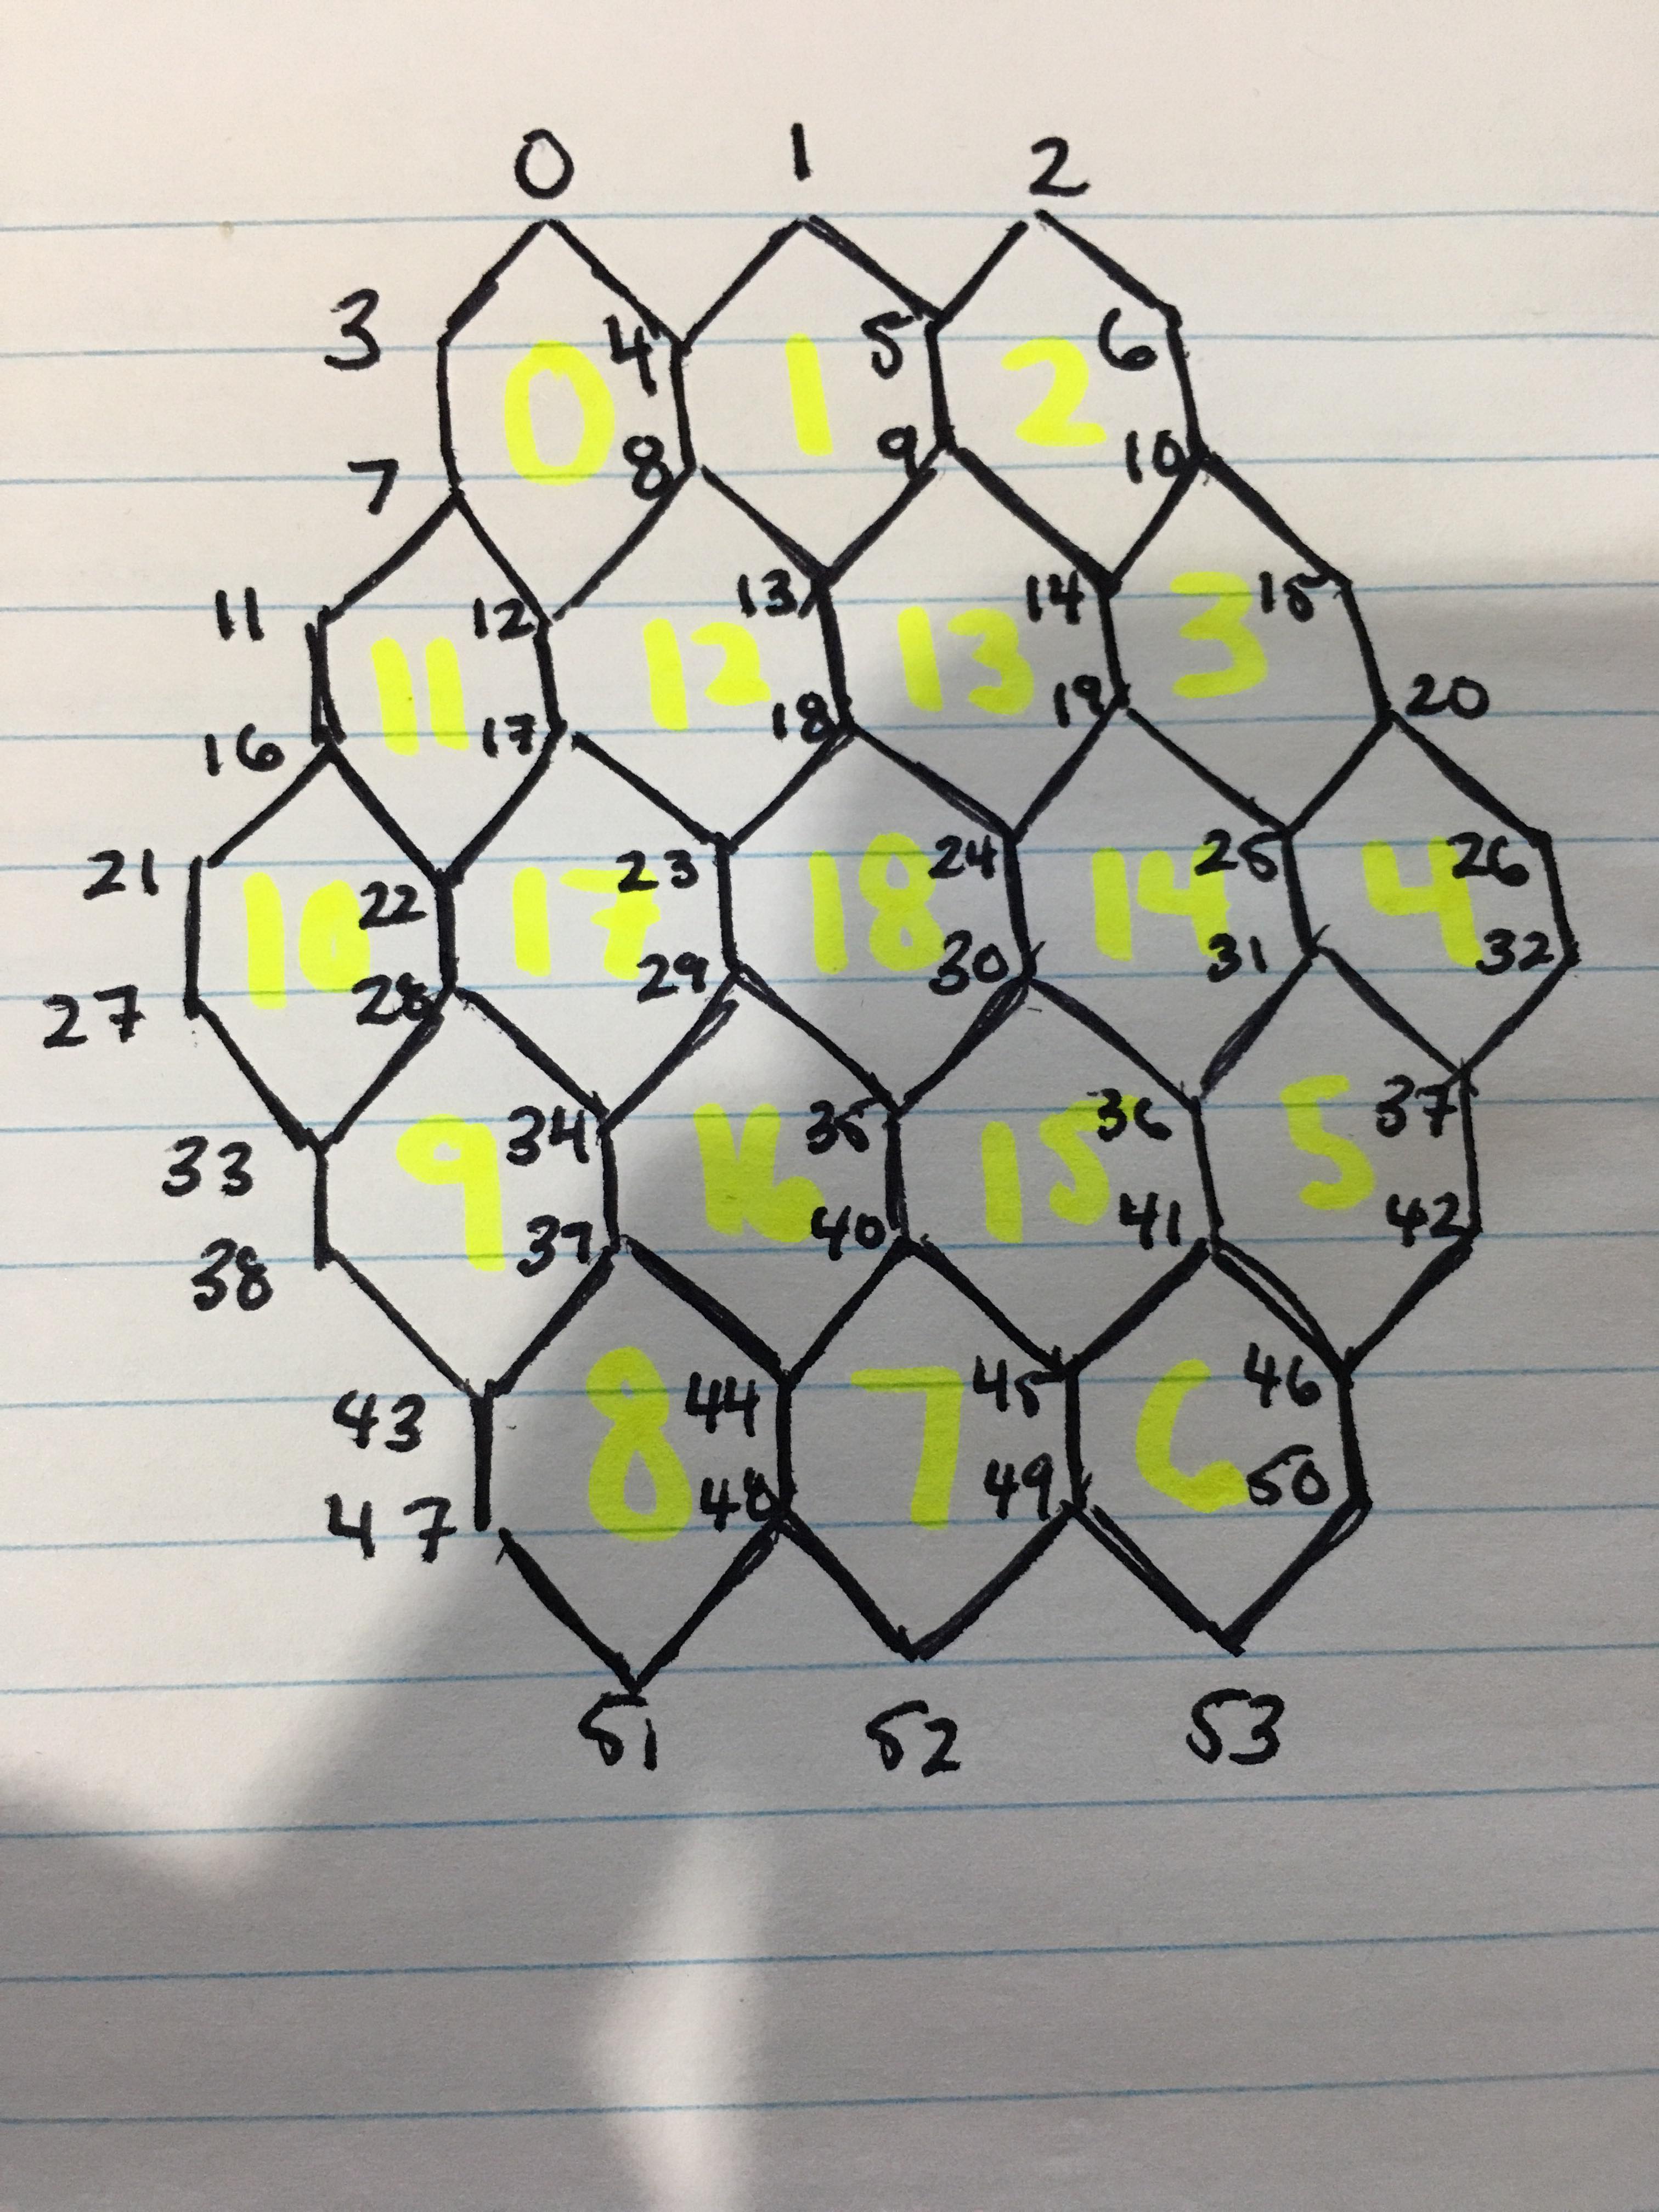 0 1 2
3 4 5 6
0 1 2
7 8 9 10
11 12 13 14 15
11 12 13 3
16 17 18 19 20
21 22 23 24 25 26
10 17 18 14 4
27 28 29 30 31 32
33 34 35 36 37
9 16 15 5
38 37 40 41 42
43 44 45 46
8 7 6
47 48 49 50
51 52 53